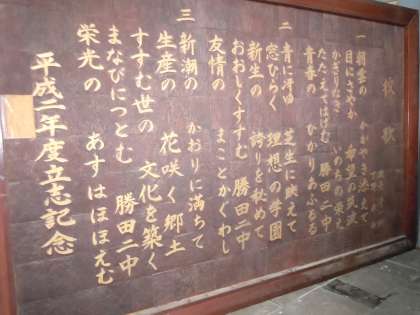 校歌
一 朝雲の かがやき添えて
目にさやか 希望の筑波
かぎりなき いのちの栄え
たたえてはげむ 勝田二中
青春の ひかりあふるる
二 青に浮ゆ 芝生に映えて
窓ひらく 理想の学園
新生の 誇りを秘めて
おおしくすすむ 勝田二中
友情の まことかぐわし
三 新潮の かおりに満ちて
生産の 花咲く郷土
すすむ世の 文化を築く
まなびにつとむ 勝田二中
栄光の あすはほほえむ
平成二年度立志記念